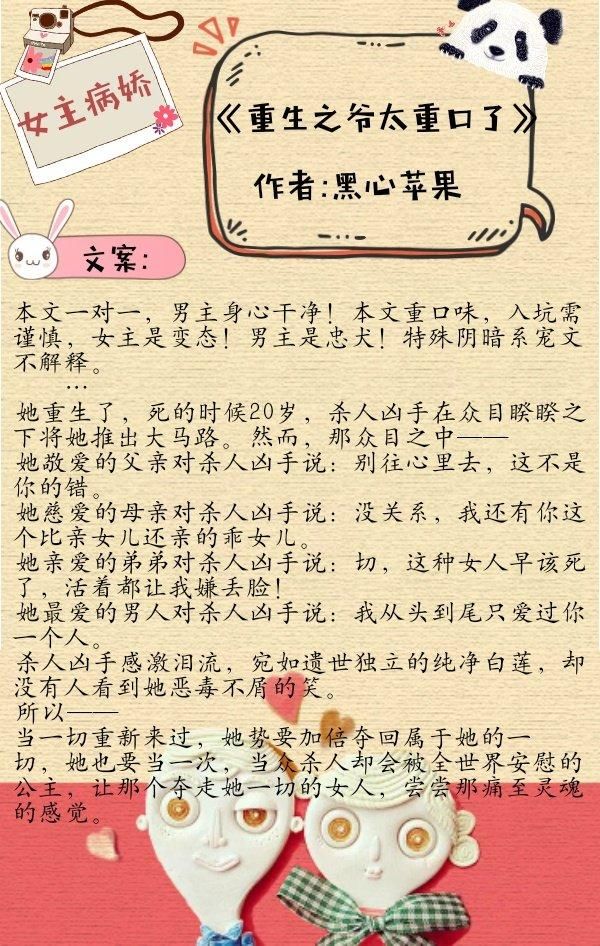 女主病娇
《重生之爷太重口了》
作者:黑心苹果
文案:
本文一对一，男主身心干净！本文重口味，入坑需
谨慎，女主是变态！男主是忠犬！特殊阴暗系宠文
不解释。
…
她重生了，死的时候20岁，杀人凶手在众目睽睽之
下将她推出大马路。然而，那众目之中——
她敬爱的父亲对杀人凶手说：别往心里去，这不是
你的错。
她慈爱的母亲对杀人凶手说：没关系，我还有你这
个比亲女儿还亲的乖女儿。
她亲爱的弟弟对杀人凶手说：切，这种女人早该死
了，活着都让我嫌丢脸！
她最爱的男人对杀人凶手说：我从头到尾只爱过你
一个人。
杀人凶手感激泪流，宛如遗世独立的纯净白莲，却
没有人看到她恶毒不屑的笑。
所以——
当一切重新来过，她势要加倍夺回属于她的一
切，她也要当一次，当众杀人却会被全世界安慰的
公主，让那个夺走她一切的女人，尝尝那痛至灵魂
的感觉。